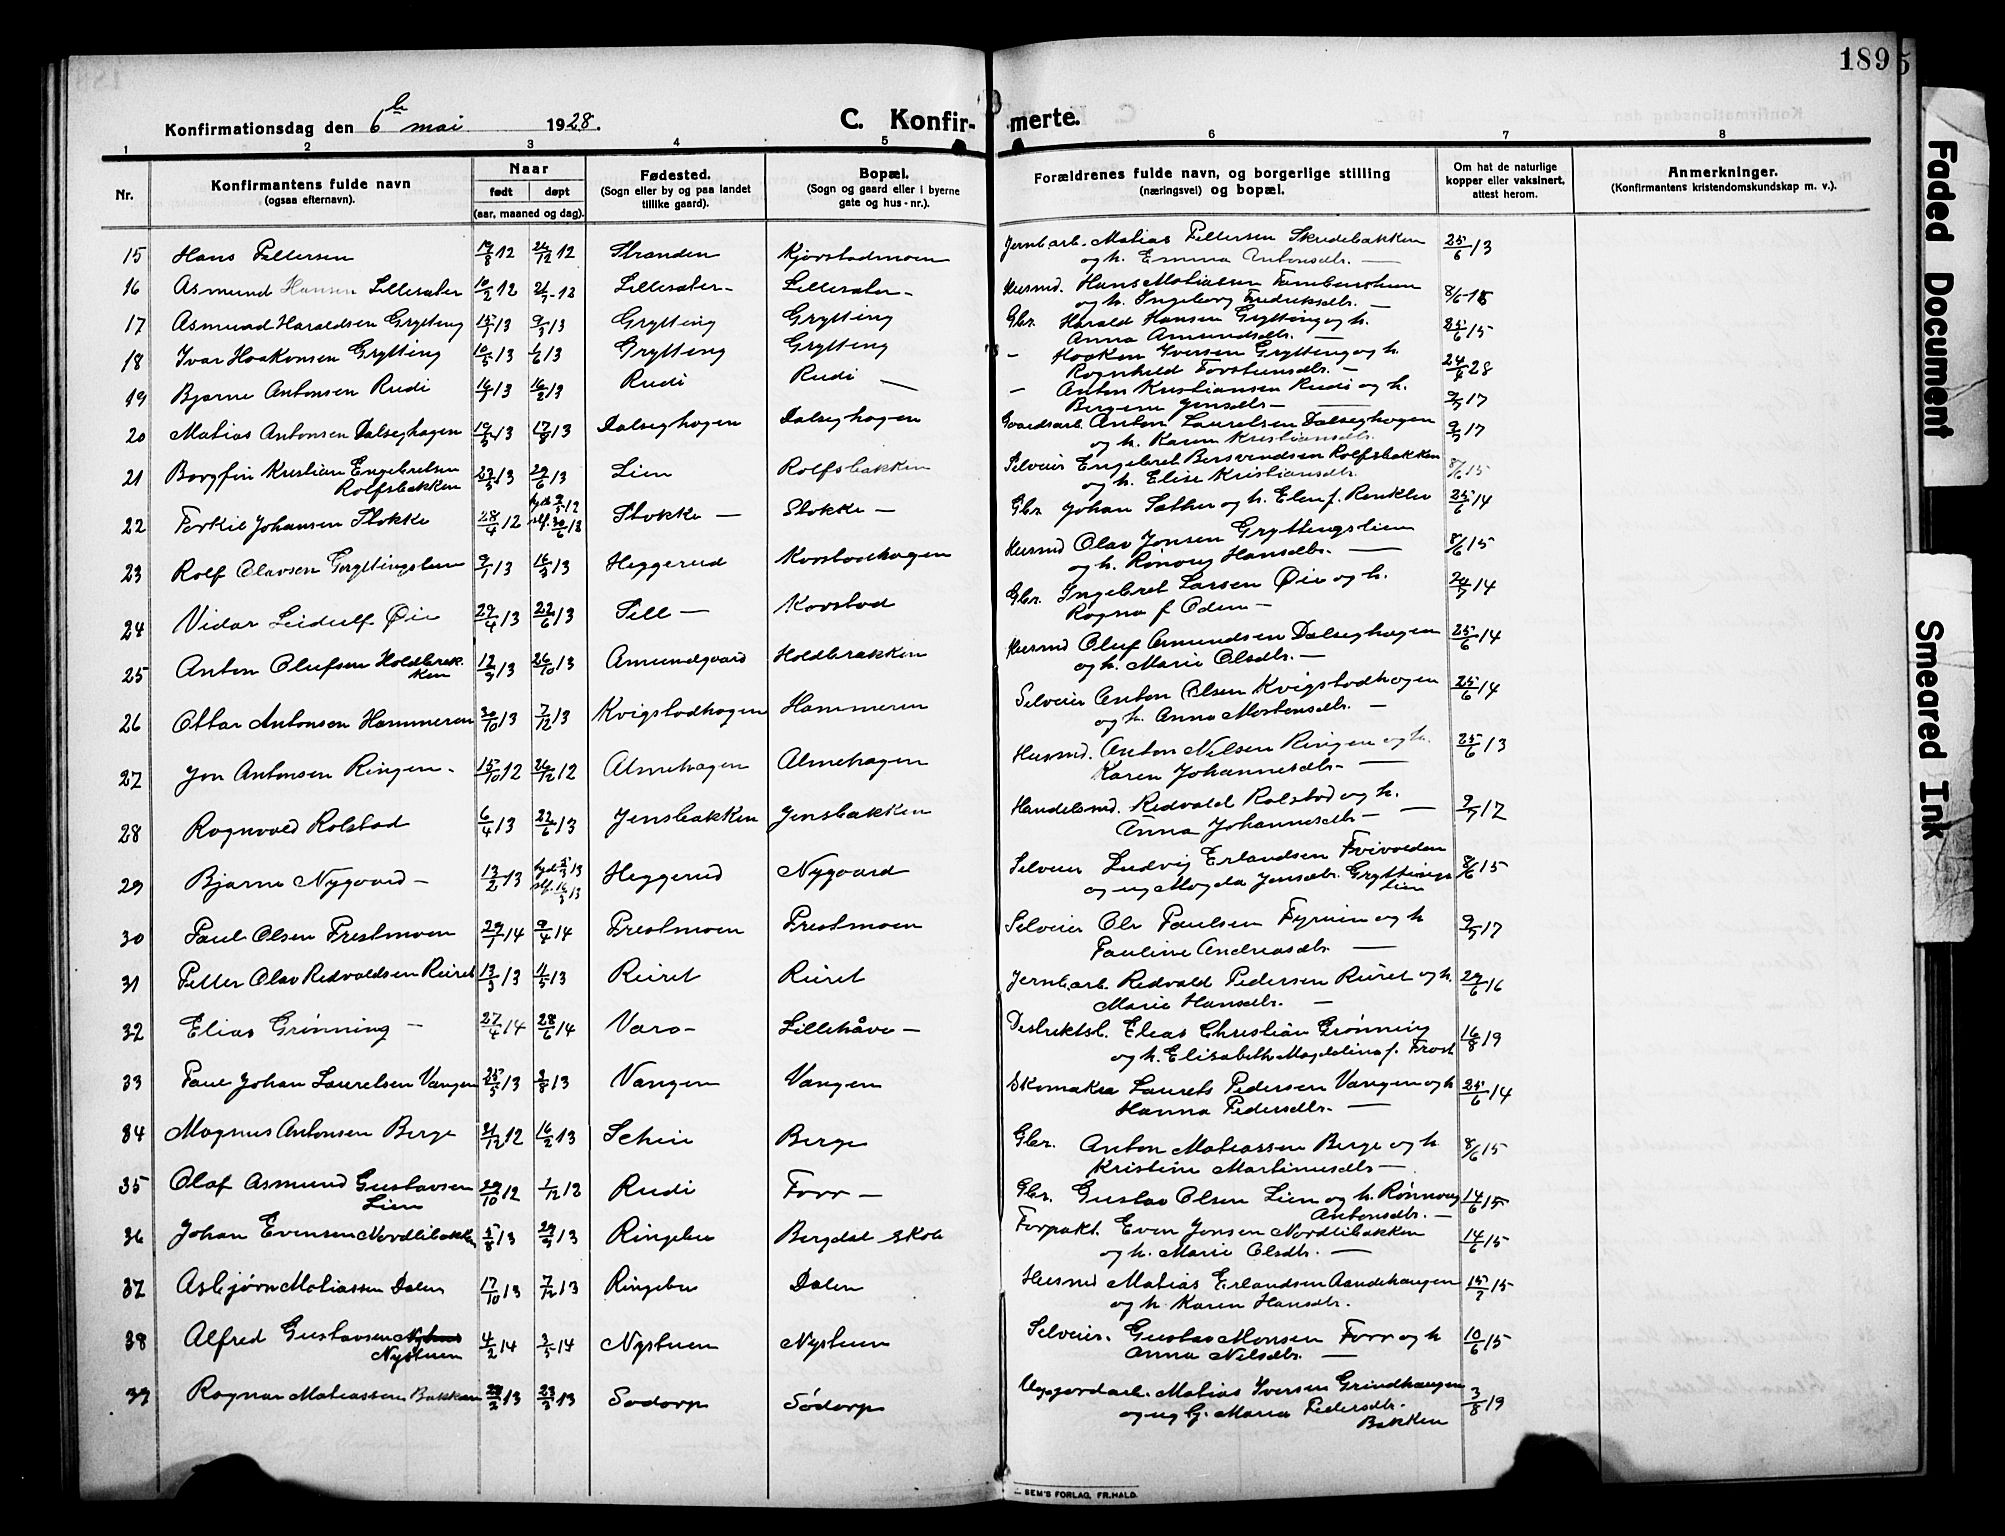 189
5
Faded Document
Smeared Ink
Konfirmationsdag den 6te mai 1928.
C. Konfir-
merte.
1 2 3 4 5 6 7 8
Nr.
Konfirmantens fulde navn
(ogsaa efternavn).
Naar
født døpt
(aar, maaned og dag).
Fødested.
(Sogn eller by og paa landet
tillike gaard).
Bopæl.
(Sogn og gaard eller i byerne
gate og hus-nr.).
Forældrenes fulde navn, og borgerlige stilling
(næringsvei) og bopæl.
Om hat de naturlige
kopper eller vaksinert,
attest herom.
Anmerkninger.
(Konfirmantens kristendomskundskap m. v.).
15 Hans Pettersen 19/8 12 26/12 12 Stranden Kjørstadmoen Jernb.arb. Matias Pettersen Skredebakken 25/6 13
og h. Emma Antonsdtr. —
16 Asmund Hansen Lillesæter 10/2 12 Lillesæter — Lillesæter — Husmd. Hans Matiasen
og h. Ingeborg Fredriksdtr. —
17 Asmund Haraldsen Grytting 13 13 Grytting Grytting Gbr. Harald Hansen Grytting og h. 25/6 15
Anna Amundsdtr. —
18 Ivar Haakonsen Grytting 10/5 13 1/6 13 Grytting Grytting — Haakon Iversen Grytting og h. 24/4 28
Ragnhild Torsteinsdtr. —
19 Bjarne Antonsen Rudi 13 16/2 13 Rudi Rudi — — Anton Kristiansen Rudi og h. 9/7 17
Jensdtr —
20 Matias Antonsen Dalseghagen 13 17/8 13 Dalseghagen Dalseghagen Gaardsarb. Anton Lauretsen Dalseghagen 9/7 17
og h. Karen Kristiansdtr.
21 Borgfin Kristian Engebretsen 13 29/6 13 Lien Rolfsbakken Selveier Engebret Bersvendsen Rolfsbakken 8/6 15
Rolfsbakken og h. Elise Kristiansdtr.
22 Torkil Johansen Stokke 28/4 12 Stokke — Stokke — Gbr. Johan Sæther og h. Elen f. 25/6 14
23 Rolf Olavsen Gryttingslien 9/1 13 16/3 13 Heggerud Korstadhagen Husmd Olav Jonsen Gryttingslien 8/6 15
og h. Rønoug Hansdtr. —
24 Vidar Leidulf Øie 29/4 13 22/6 13 Sell — Korstad Gbr. Ingebret Larsen Øie og h. 14
Ragna f. Odem —
25 Anton Olufsen Holdbrek- 13 26/10 13 Amundgaard Holdbrakken Husmd Oluf Amundsen Dalseghagen 25/6 14
ken og h. Marie Olsdtr. —
26 Ottar Antonsen Hammeren 30/10 13 7/12 13 Kvigstadhagen Hammeren Selveier Anton Olsen Kvigstadhagen 25/6 14
og h. Anna Mortensdtr. —
27 Jon Antonsen Ringen — 15/10 12 26/12 12 Almehagen Almehagen Husmd. Anton Nilsen Ringen og h. 25/6 13
Karen Johannesdtr — —
28 Ragnvald Rolstad 6/4 13 22/6 13 Jensbakken Jensbakken Handelsmd. Redvald Rolstad og h. 9/7 17
Anna Johannesdtr — —
29 Bjarne Nygaard — 13/2 13 Heggerud Nygaard Selveier Ludvig Erlandsen 8/6 15
og ug. Magda Jensdtr. Gryttings
lien
30 Paul Olsen Prestmoen 29/1 14 9/4 14 Prestmoen Prestmoen Selveier Ole Paulsen og h 9/7 17
Pauline Andreasdtr. —
31 Petter Olav Redvaldsen Ruret 13/3 13 11/5 13 Ruret Ruret Jernb.arb. Redvald Pedersen Ruret og h. 29/6 16
Marie Hansdtr. —
32 Elias Grønning — 27/4 14 28/6 14 Varo — Lillehåve — Distriktsl. Elias Christian Grønning 16/8 19
og h. Elisabeth Magdalina f. Frost
33 Paul Johan Lauretsen Vangen 25/5 13 3/8 13 Vangen Vangen Skomaker Laurets Pedersen Vangen og h 25/6 14
Hanna Pedersdtr. —
34 Magnus Antonsen Berge 21/12 12 16/2 13 Berge Gbr. Anton Matiassen Berge og h 8/6 15
Kristine Martinusdtr —
35 Olaf Asmund Gustavsen 29/10 12 1/12 12 Rudi Forr — Gbr. Gustav Olsen Lien og h. Rønnoug 14/6 15
Lien Antonsdtr. —
36 Johan Evensen Nordlibakken 5/8 13 13 Ringebu Bergdal skole Forpakt. Even Jonsen Nordlibakken 14/6 15
og h. Marie Olsdtr. —
37 Asbjørn Matiassen Dalen 17/10 13 7/12 13 Ringebu Dalen Husmd Matias Erlandsen Aandehaugen 15
og h. Karen Hansdtr.
38 Alfred Gustavsen 4/2 14 3/5 14 Nystuen Nystuen Selveier. Gustav Monsen Forr og h 10/6 15
Nystuen Anna Nilsdtr. —
39 Ragnar Matiassen Bakken 13 13 Sødorp Sødorp Matias Iversen Grindhaugen 3/8 19
og ug. Gj. Maria Pedersdtr.
Bakken
SEM'S FORLAG, FR.HALD.